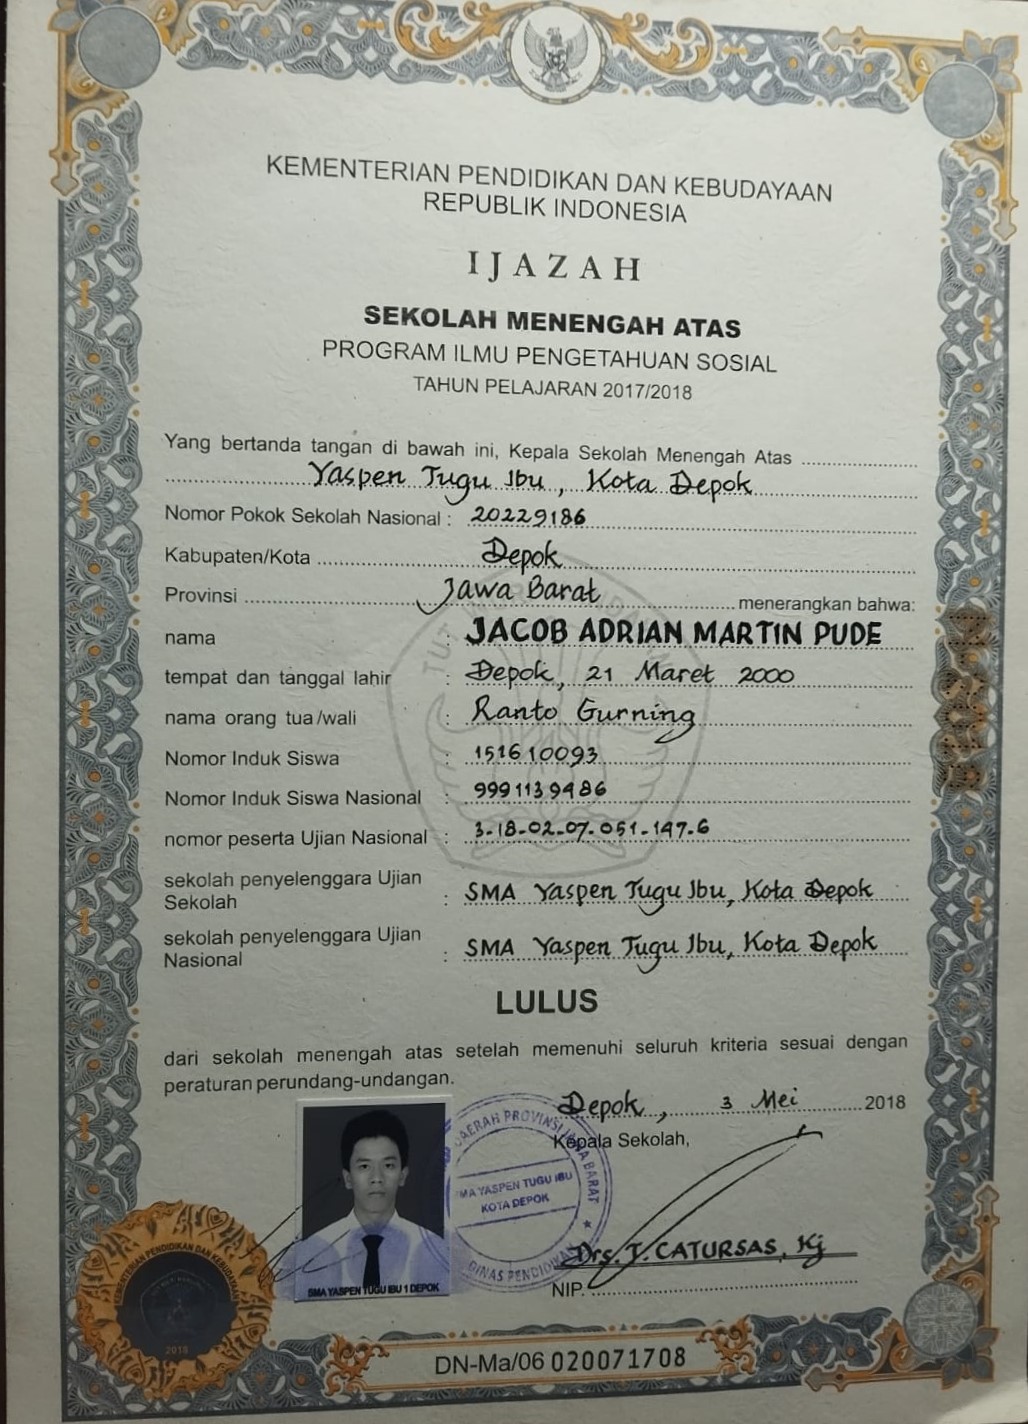 KEMENTERIAN PENDIDIKAN DAN KEBUDAYAAN
REPUBLIK INDONESIA
IJAZAH
SEKOLAH MENENGAH ATAS
PROGRAM ILMU PENGETAHUAN SOSIAL
TAHUN PELAJARAN 2017/2018
Yang bertanda tangan di bawah ini, Kepala Sekolah Menengah Atas
Yaspen Tugu Ibu, Kota Depok
Nomor Pokok Sekolah Nasional : 20229186
Kabupaten/Kota Depok
Provinsi Jawa Barat menerangkan bahwa:
nama : JACOB ADRIAN MARTIN PUDE
tempat dan tanggal lahir : Depok, 21 Maret 2000
nama orang tua/wali : Ranto Gurning
Nomor Induk Siswa : 151610093
Nomor Induk Siswa Nasional : 9991139486
nomor peserta Ujian Nasional : 3-18-02-07-051-147-6
sekolah penyelenggara Ujian
Sekolah : SMA Yaspen Tugu Ibu, Kota Depok
sekolah penyelenggara Ujian
Nasional : SMA Yaspen Tugu Ibu, Kota Depok
LULUS
dari sekolah menengah atas setelah memenuhi seluruh kriteria sesuai dengan
peraturan perundang-undangan.
Depok, 3 Mei 2018
Kepala Sekolah,
DAERAH PROVINSI JAWA BARAT
SMA YASPEN TUGU IBU
KOTA DEPOK
DINAS PENDIDIKAN
Drs. T. CATURSAS, Kj
NIP.
SMA YASPEN TUGU IBU 1 DEPOK
KEMENTERIAN PENDIDIKAN DAN KEBUDAYAAN
2018
DN-Ma/06 020071708